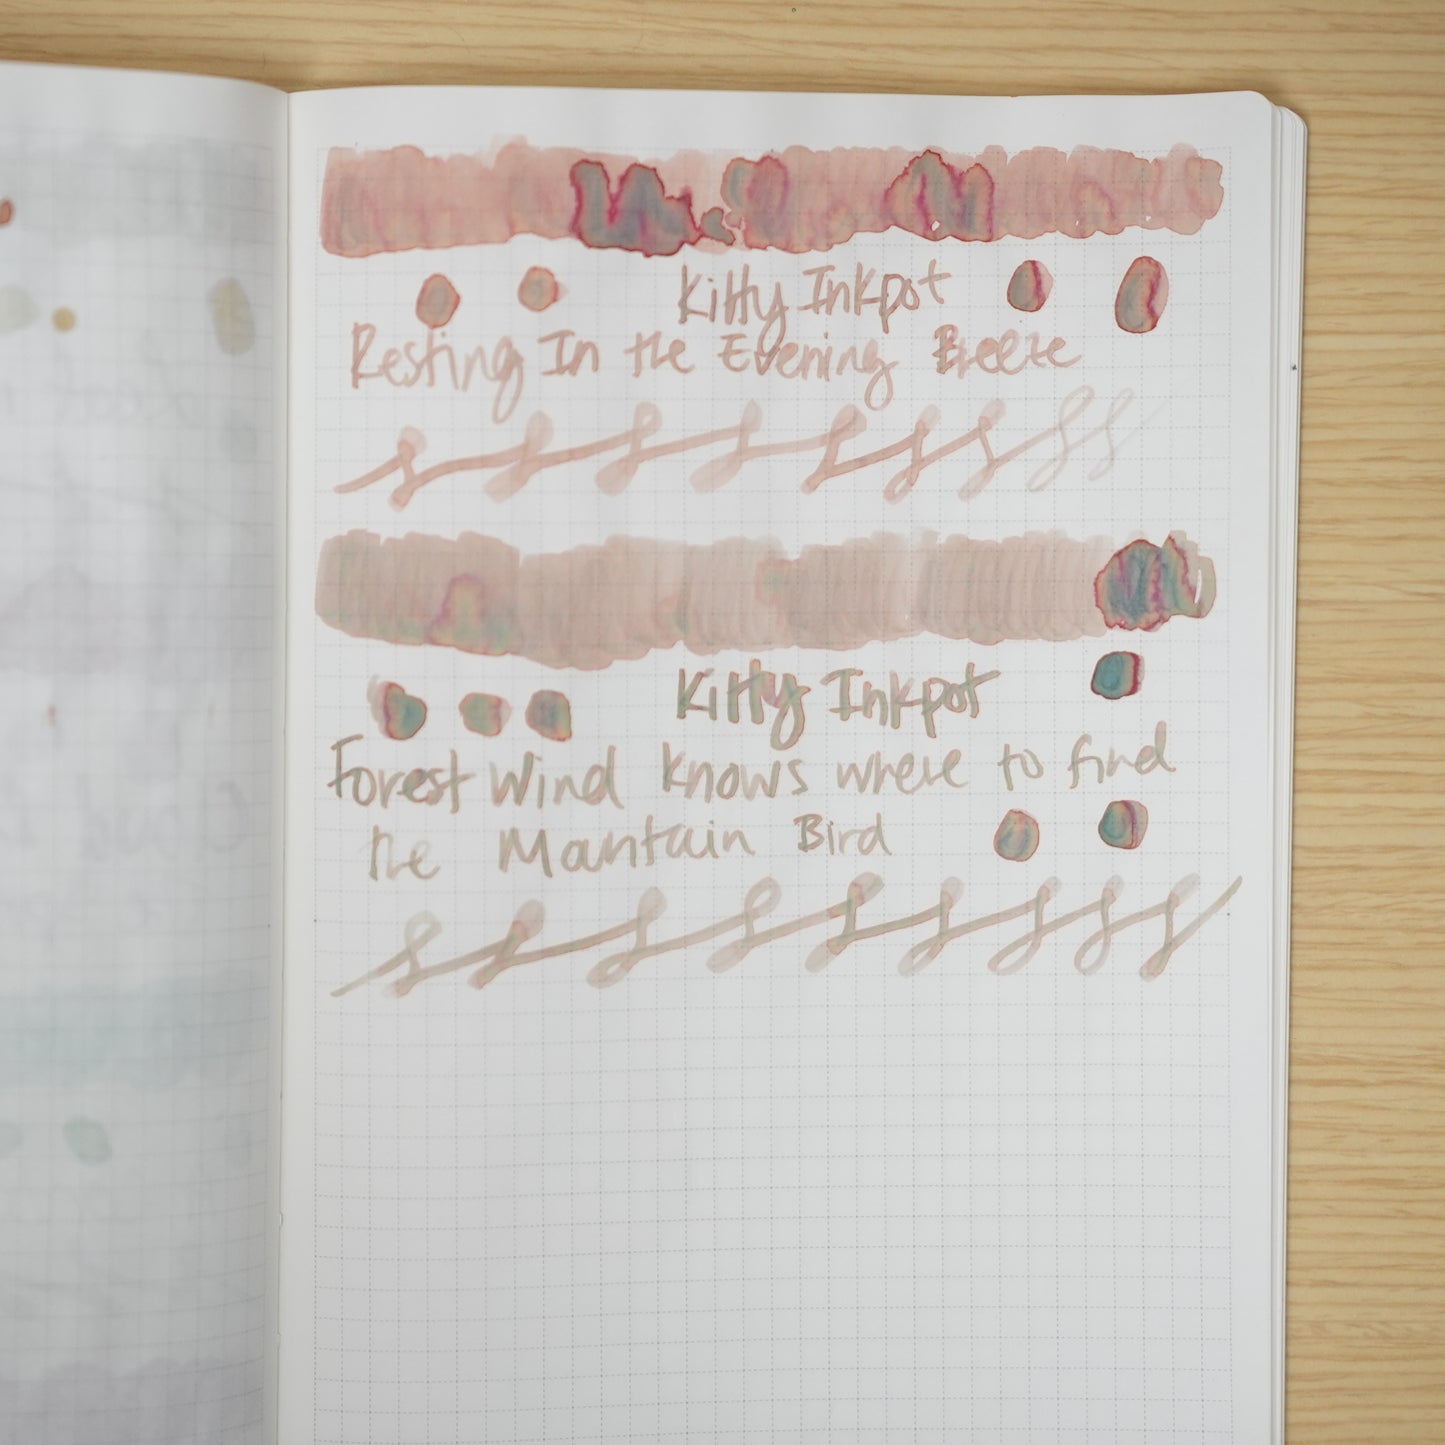 Kitty Inkpot
Resting In the Evening Breeze
Kitty Inkpot
Forest Wind knows where to find
the Mountain Bird